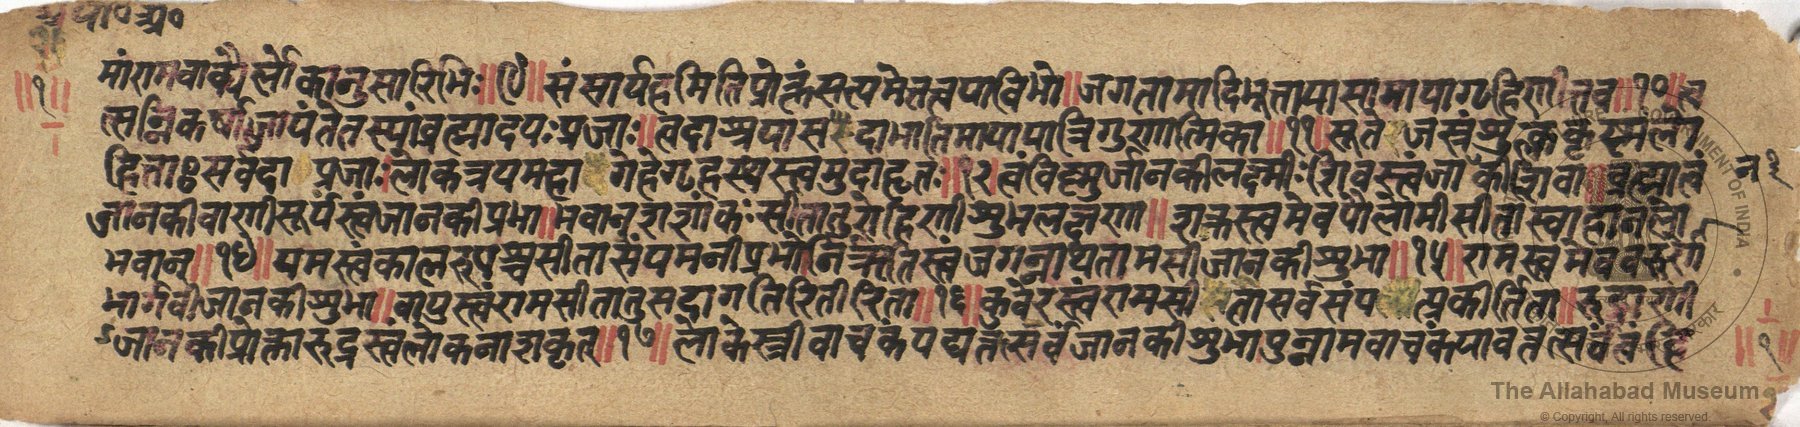 अ० या० अ०
१
मां राम वाक्यैर्लोकानुसारिभिः॥९॥संसार्यहमिति प्रोक्तं सत्यमेतत्त्वया विभो॥जगतामादिभूता या सा माया गृहिणी तव॥१०॥त्व
त्सन्निकर्षाज्जायंते तस्यां ब्रह्मादयः प्रजाः॥त्वदाश्रया सदा भाति माया या त्रिगुणात्मिका॥११॥सूते जस्रं शुक्लकृष्णलो
हिताः सर्वदा प्रजाः।लोकत्रयमहागेहे गृहस्थस्त्वमुदाहृतः॥१२॥त्वं विष्णुर्जानकी लक्ष्मीः शिवस्त्वं जानकी शिवा॥ब्रह्मा त्वं
न २
जानकी वाणी सूर्यस्त्वं जानकी प्रभा॥भवान् शशांकः सीता तु रोहिणी शुभलक्षणा॥शक्रस्त्वमेव पौलोमी सीता स्वाहानलो
भवान्॥१४॥यमस्त्वं कालरूपश्च सीता संयमनी प्रभो।निर्ऋतिस्त्वं जगन्नाथ तामसी जानकी शुभा॥१५॥राम त्वमेव वरुणो
भार्गवी जानकी शुभा॥वायुस्त्वं राम सीता तु सदागतिरितीरिता॥१६॥कुवेरस्त्वं राम सीता सर्वसंपत्प्रकीर्तिता॥रुद्राणी
जानकी प्रोक्ता रुद्रस्त्वं लोकनाशकृत्॥१७॥लोके स्त्रीवाचकं यद्यत्तत्सर्वं जानकी शुभा पुन्नामवाचकं यावत्तत्सर्वं त्वं हि
१
The Allahabad Museum
© Copyright, All rights reserved.